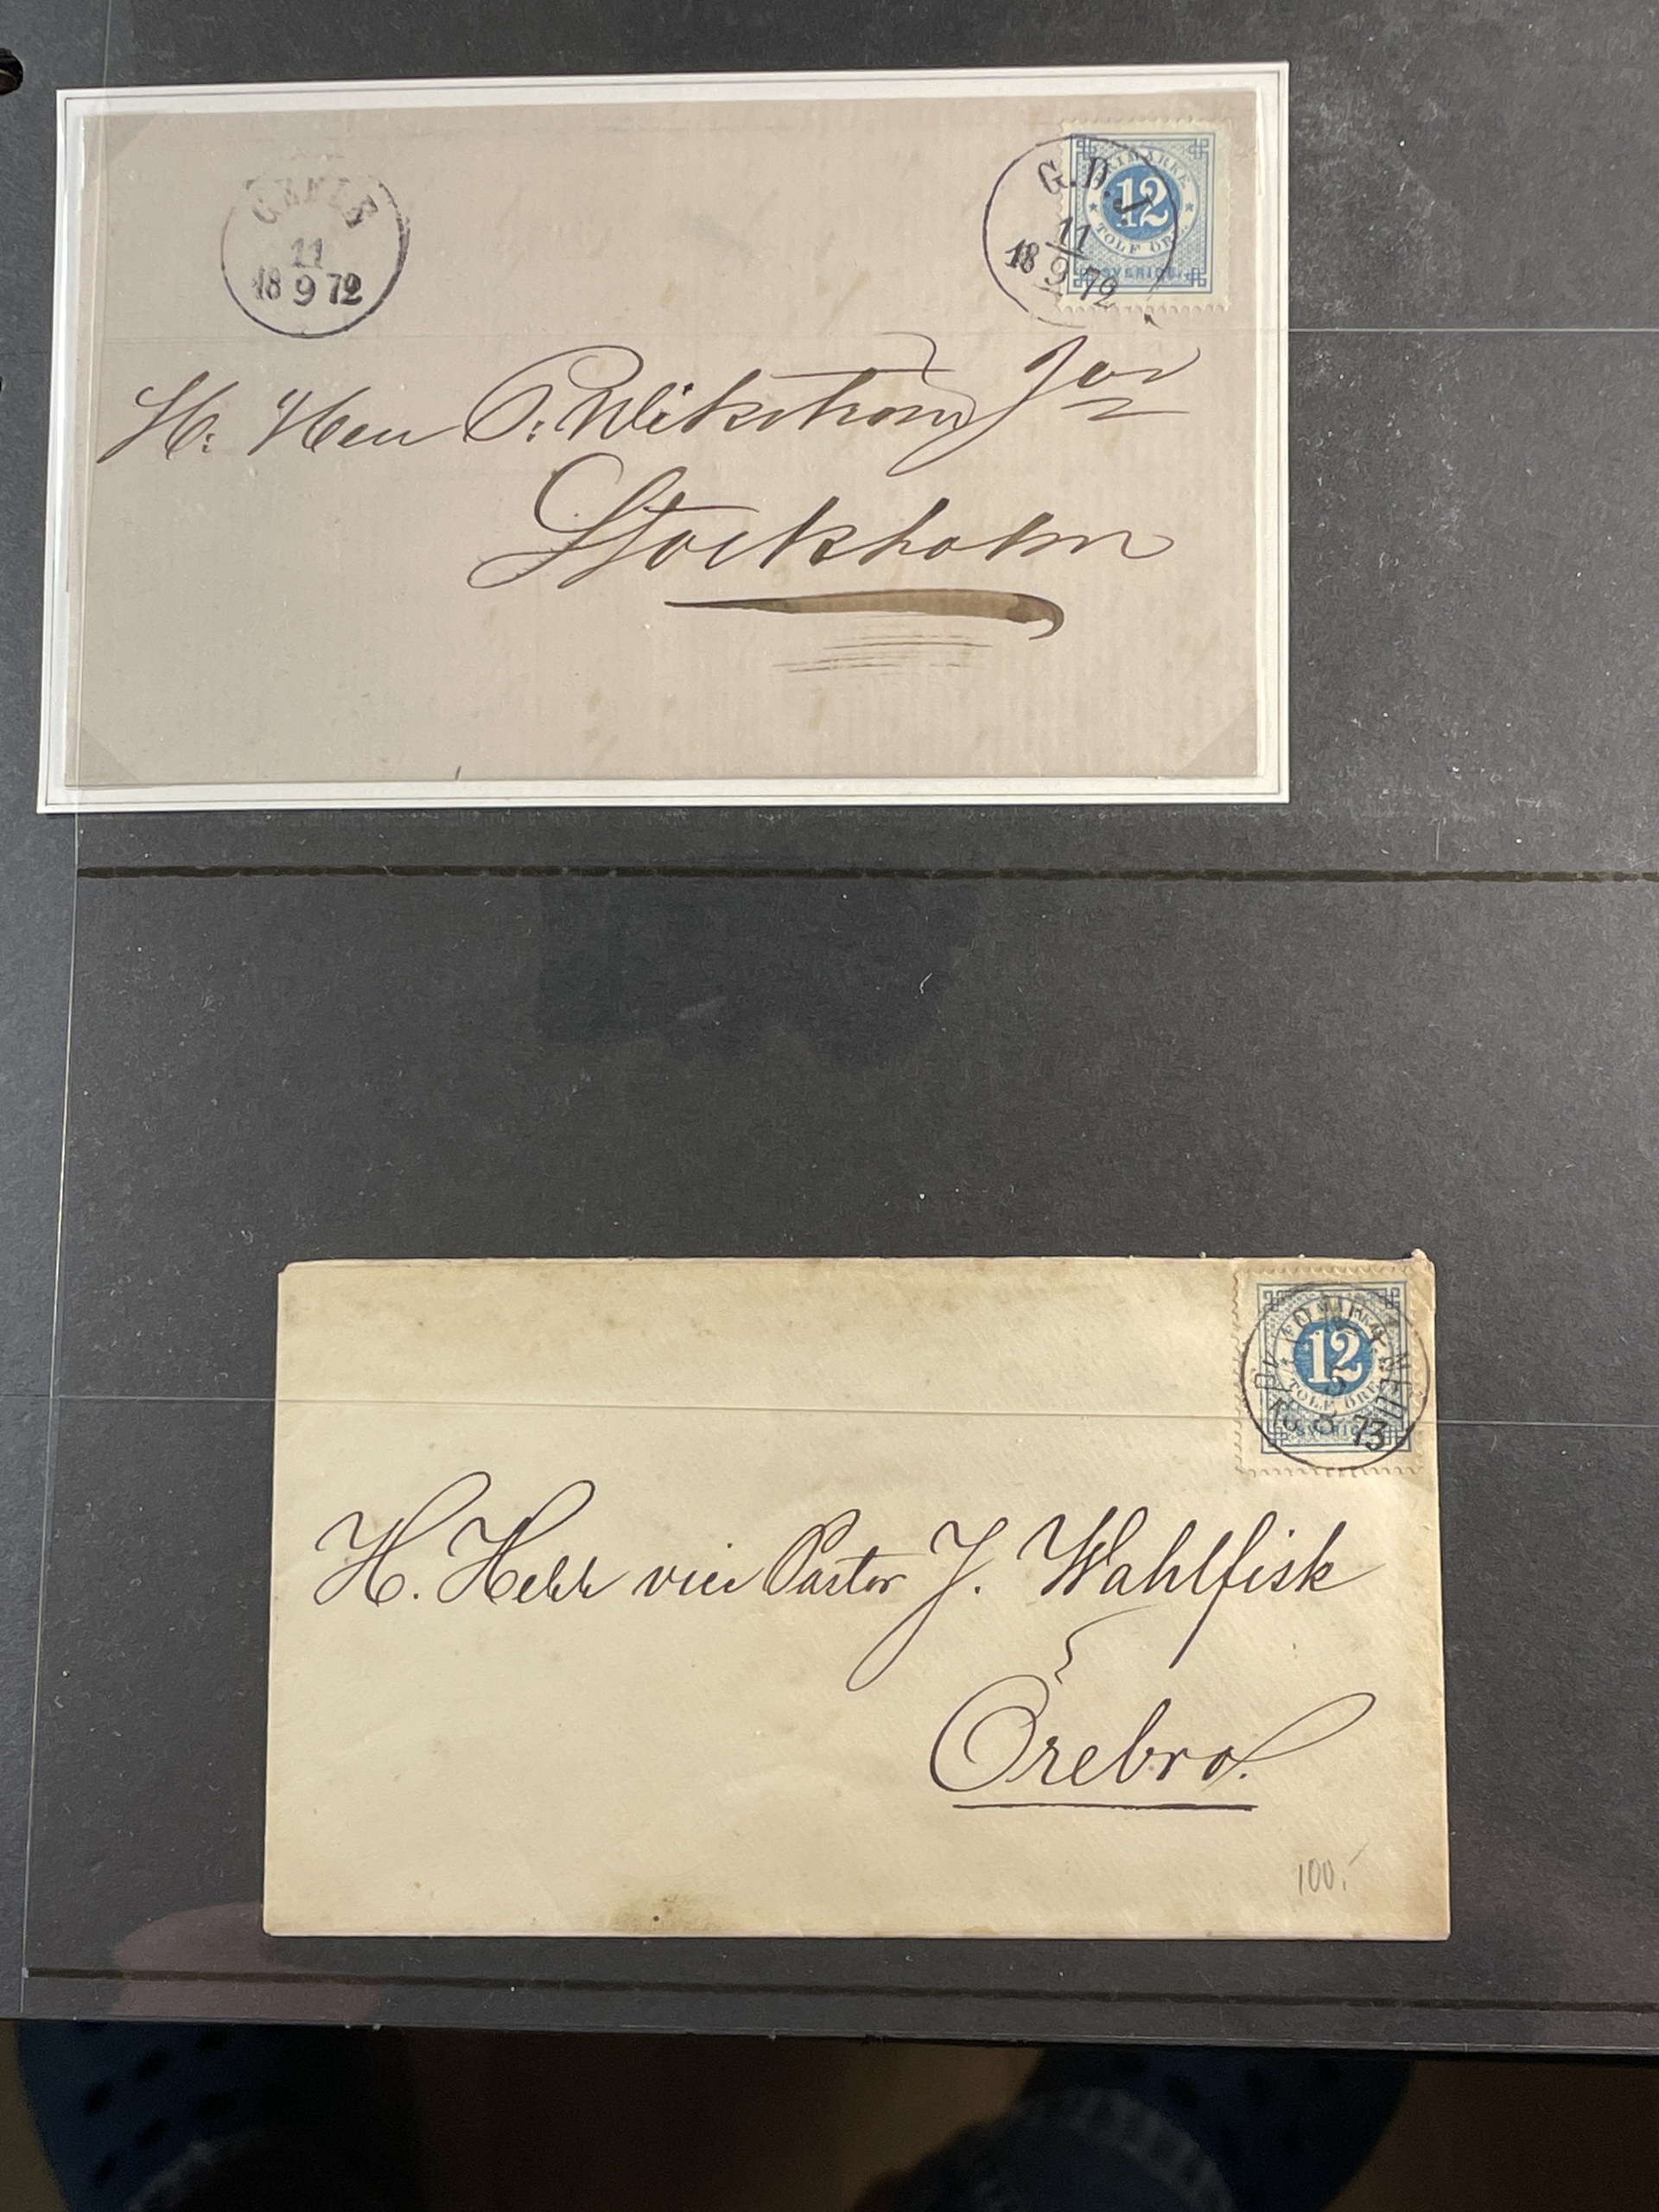 GEFLE
11
18 9 72
G.D.J
11
18 9 72
FRIMÄRKE
12
TOLF ÖRE.
SVERIGE
H: Herr P: Wikström Jor
Stockholm
FRIMÄRKE
12
TOLF ÖRE
SVERIGE
UPP NED
5
8 73
H. Herr vice Pastor J. Wahlfisk
Örebro.
100:-